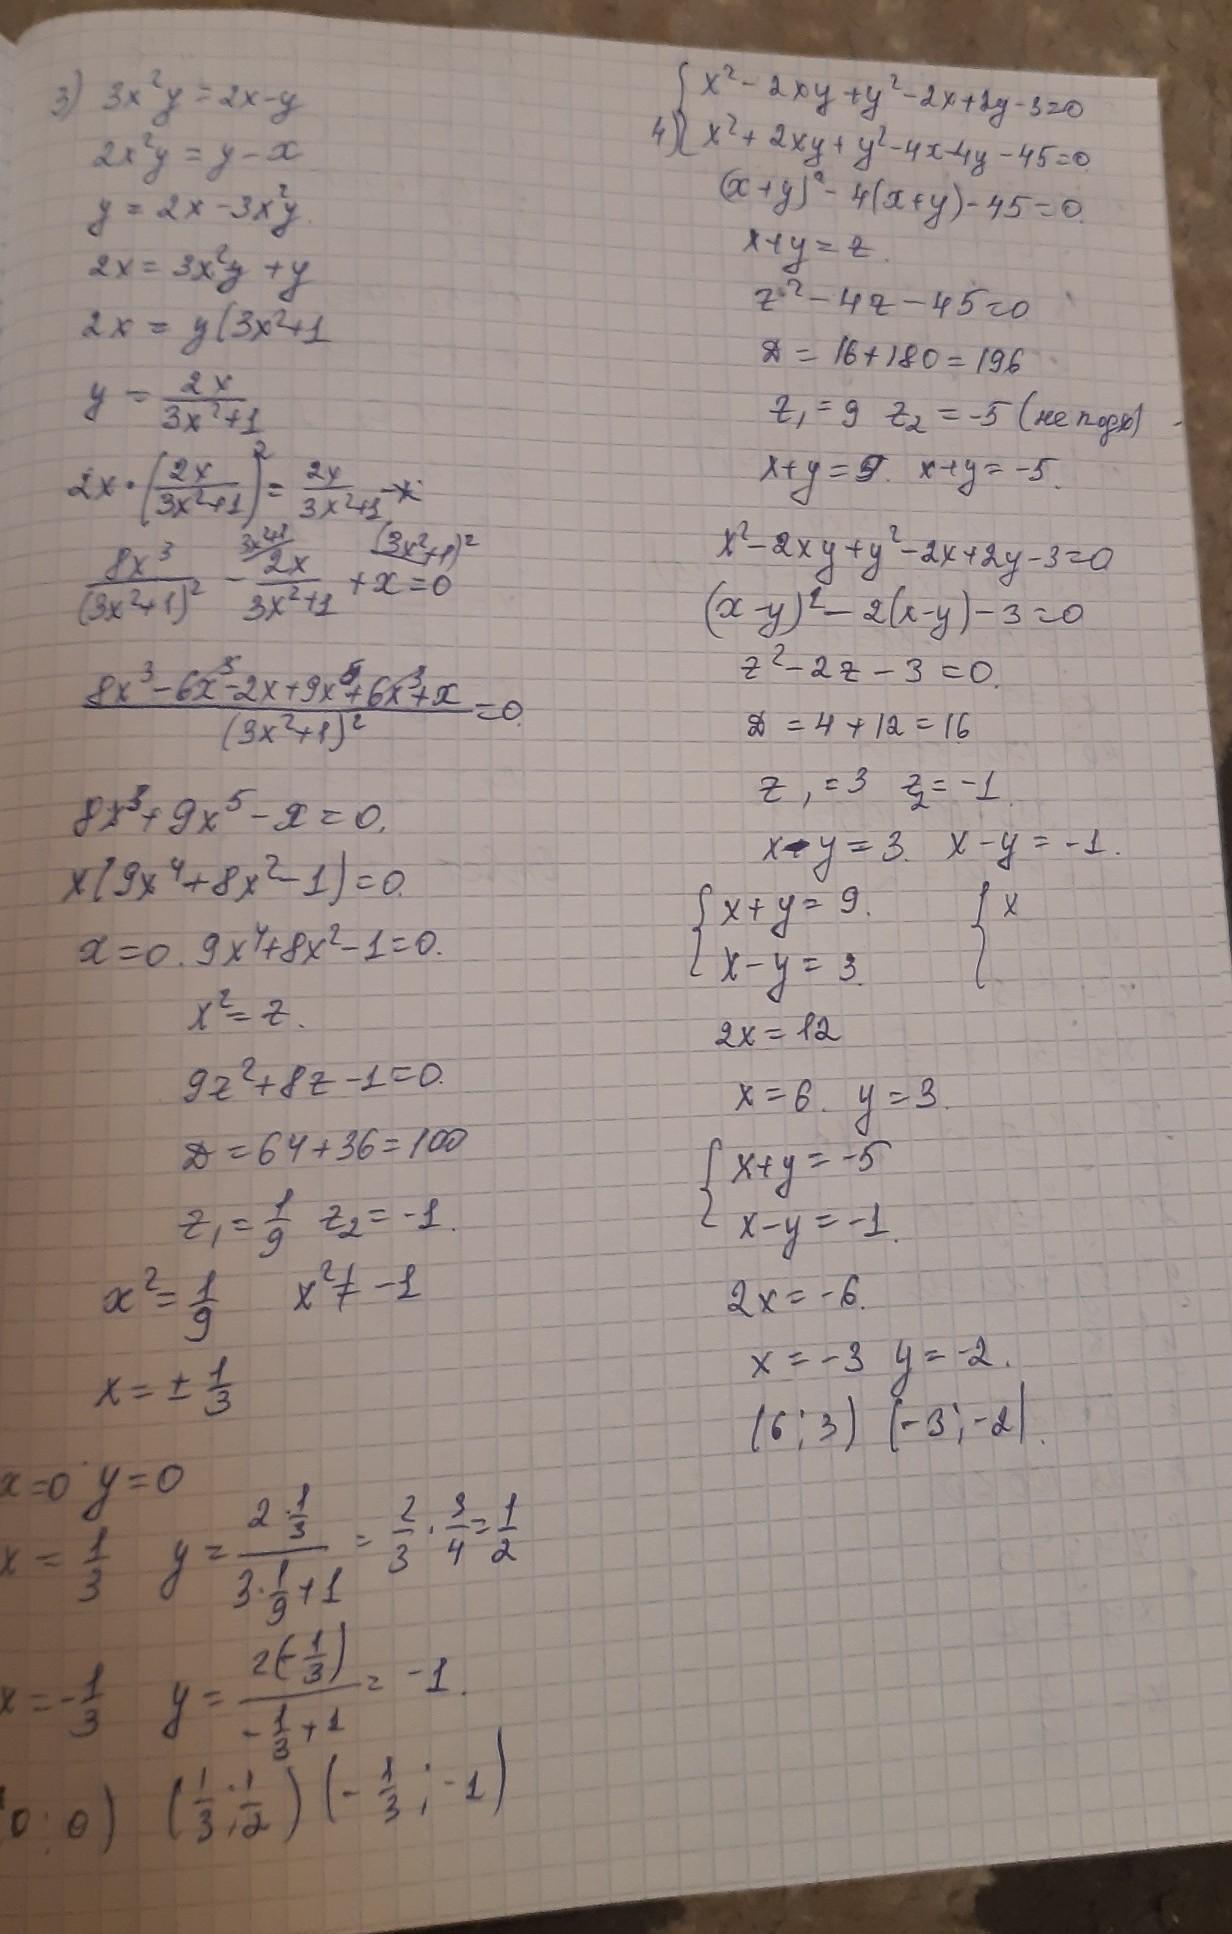 3) 3x²y = 2x-y
2x²y = y - x
y = 2x - 3x²y.
2x = 3x²y + y
2x = y(3x²+1
y = 2x/(3x²+1)
2x·(2x/(3x²+1))² = 2x/(3x²+1) - x
8x³/(3x²+1)² - 2x/(3x²+1) + x = 0
3x²+1 (3x²+1)²
(8x³-6x³-2x+9x⁵+6x³+x)/(3x²+1)² = 0.
8x³+9x⁵-x = 0.
x(9x⁴+8x²-1) = 0.
x = 0. 9x⁴+8x²-1=0.
x² = z.
9z²+8z-1=0.
D = 64+36=100
z₁ = 1/9 z₂ = -1.
x² = 1/9 x² ≠ -1
x = ± 1/3
x=0 y=0
x = 1/3 y = (2·1/3)/(3·1/9+1) = 2/3 · 3/4 = 1/2
x = -1/3 y = (2(-1/3))/(-1/3+1) = -1.
0; 0) (1/3; 1/2) (-1/3; -1)
4) { x²-2xy+y²-2x+2y-3=0
x²+2xy+y²-4x-4y-45=0.
(x+y)²-4(x+y)-45=0.
x+y=z.
z²-4z-45=0
D = 16+180=196
z₁ = 9 z₂ = -5 (не подх)
x+y=9. x+y=-5.
x²-2xy+y²-2x+2y-3=0
(x-y)²-2(x-y)-3=0
z²-2z-3=0.
D = 4+12=16
z₁=3 z₂=-1.
x-y=3. x-y=-1.
{ x+y=9. { x
x-y=3.
2x=12
x=6. y=3.
{ x+y=-5
x-y=-1.
2x=-6.
x=-3 y=-2.
(6; 3) (-3; -2).